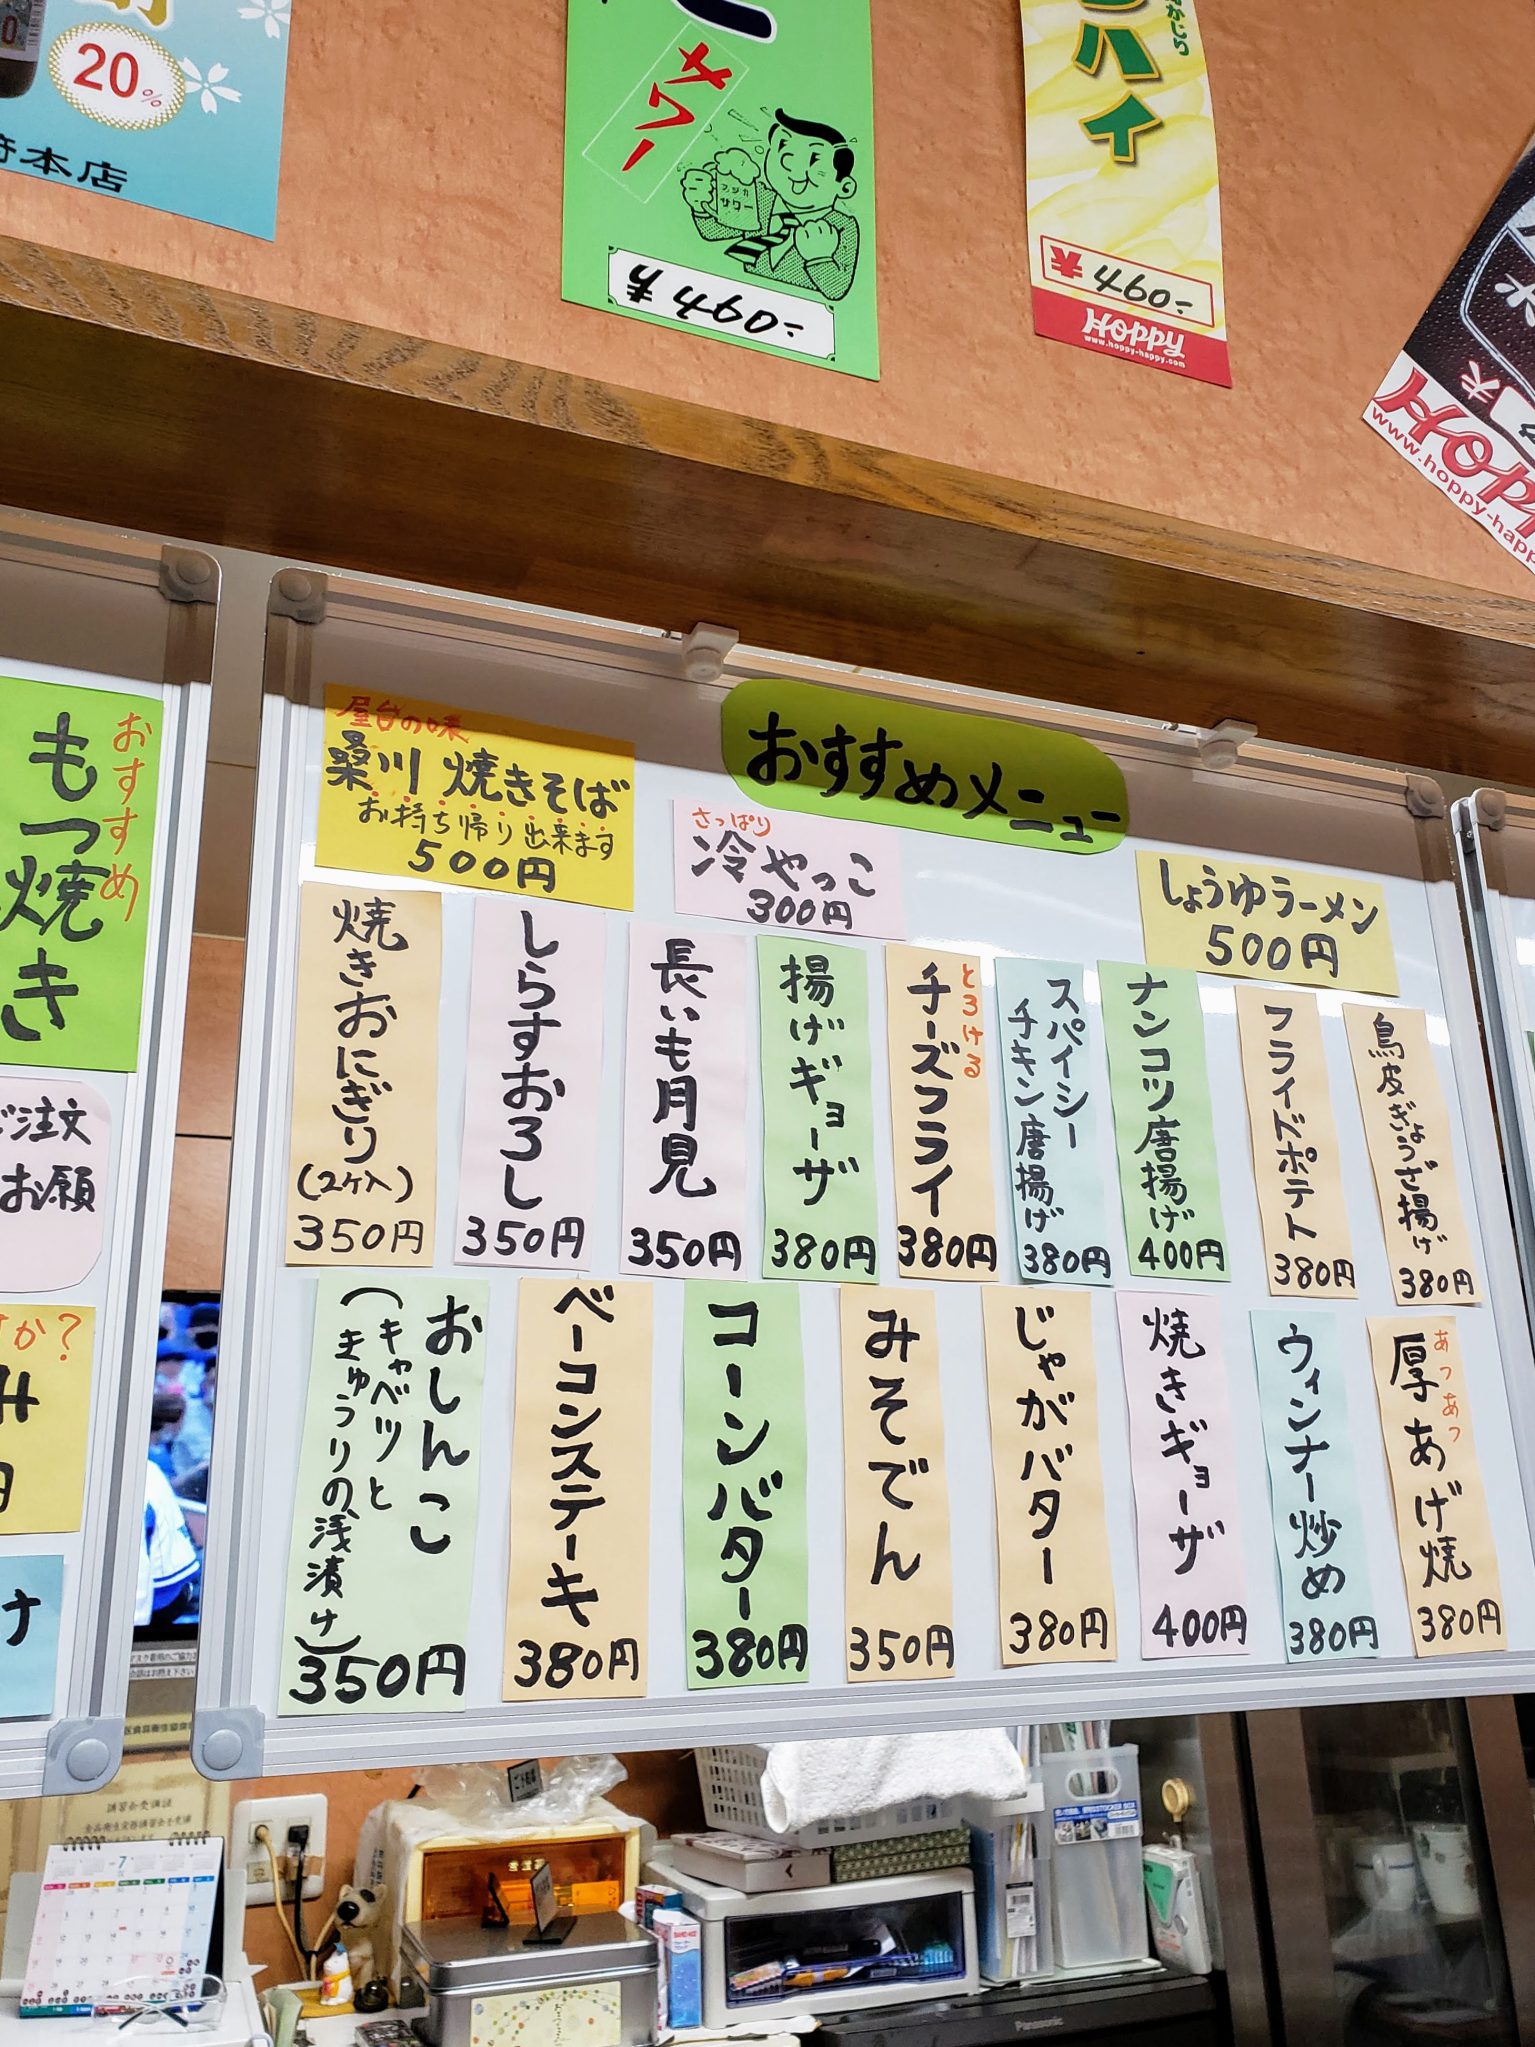 20%
本店
サワー
フジカ
サワー
¥460-
ハイ
¥460-
HOPPY
www.hoppy-happy.com
HOPP
www.hoppy-happ
おすすめ
もつ焼き
ご注文
お願
すか?
円
おすすめメニュー
屋台の味
桑川 焼きそば
お持ち帰り出来ます
500円
さっぱり
冷やっこ
300円
しょうゆラーメン
500円
焼きおにぎり
(2ケ入)
350円
しらすおろし
350円
長いも月見
350円
揚げギョーザ
380円
とろける
チーズフライ
380円
スパイシー
チキン唐揚げ
380円
ナンコツ唐揚げ
400円
フライドポテト
380円
鳥皮ぎょうざ揚げ
380円
おしんこ
(キャベツと
きゅうりの浅漬け)
350円
ベーコンステーキ
380円
コーンバター
380円
みそでん
350円
じゃがバター
380円
焼きギョーザ
400円
ウィンナー炒め
380円
あつあつ
厚あげ焼
380円
7
Panasonic